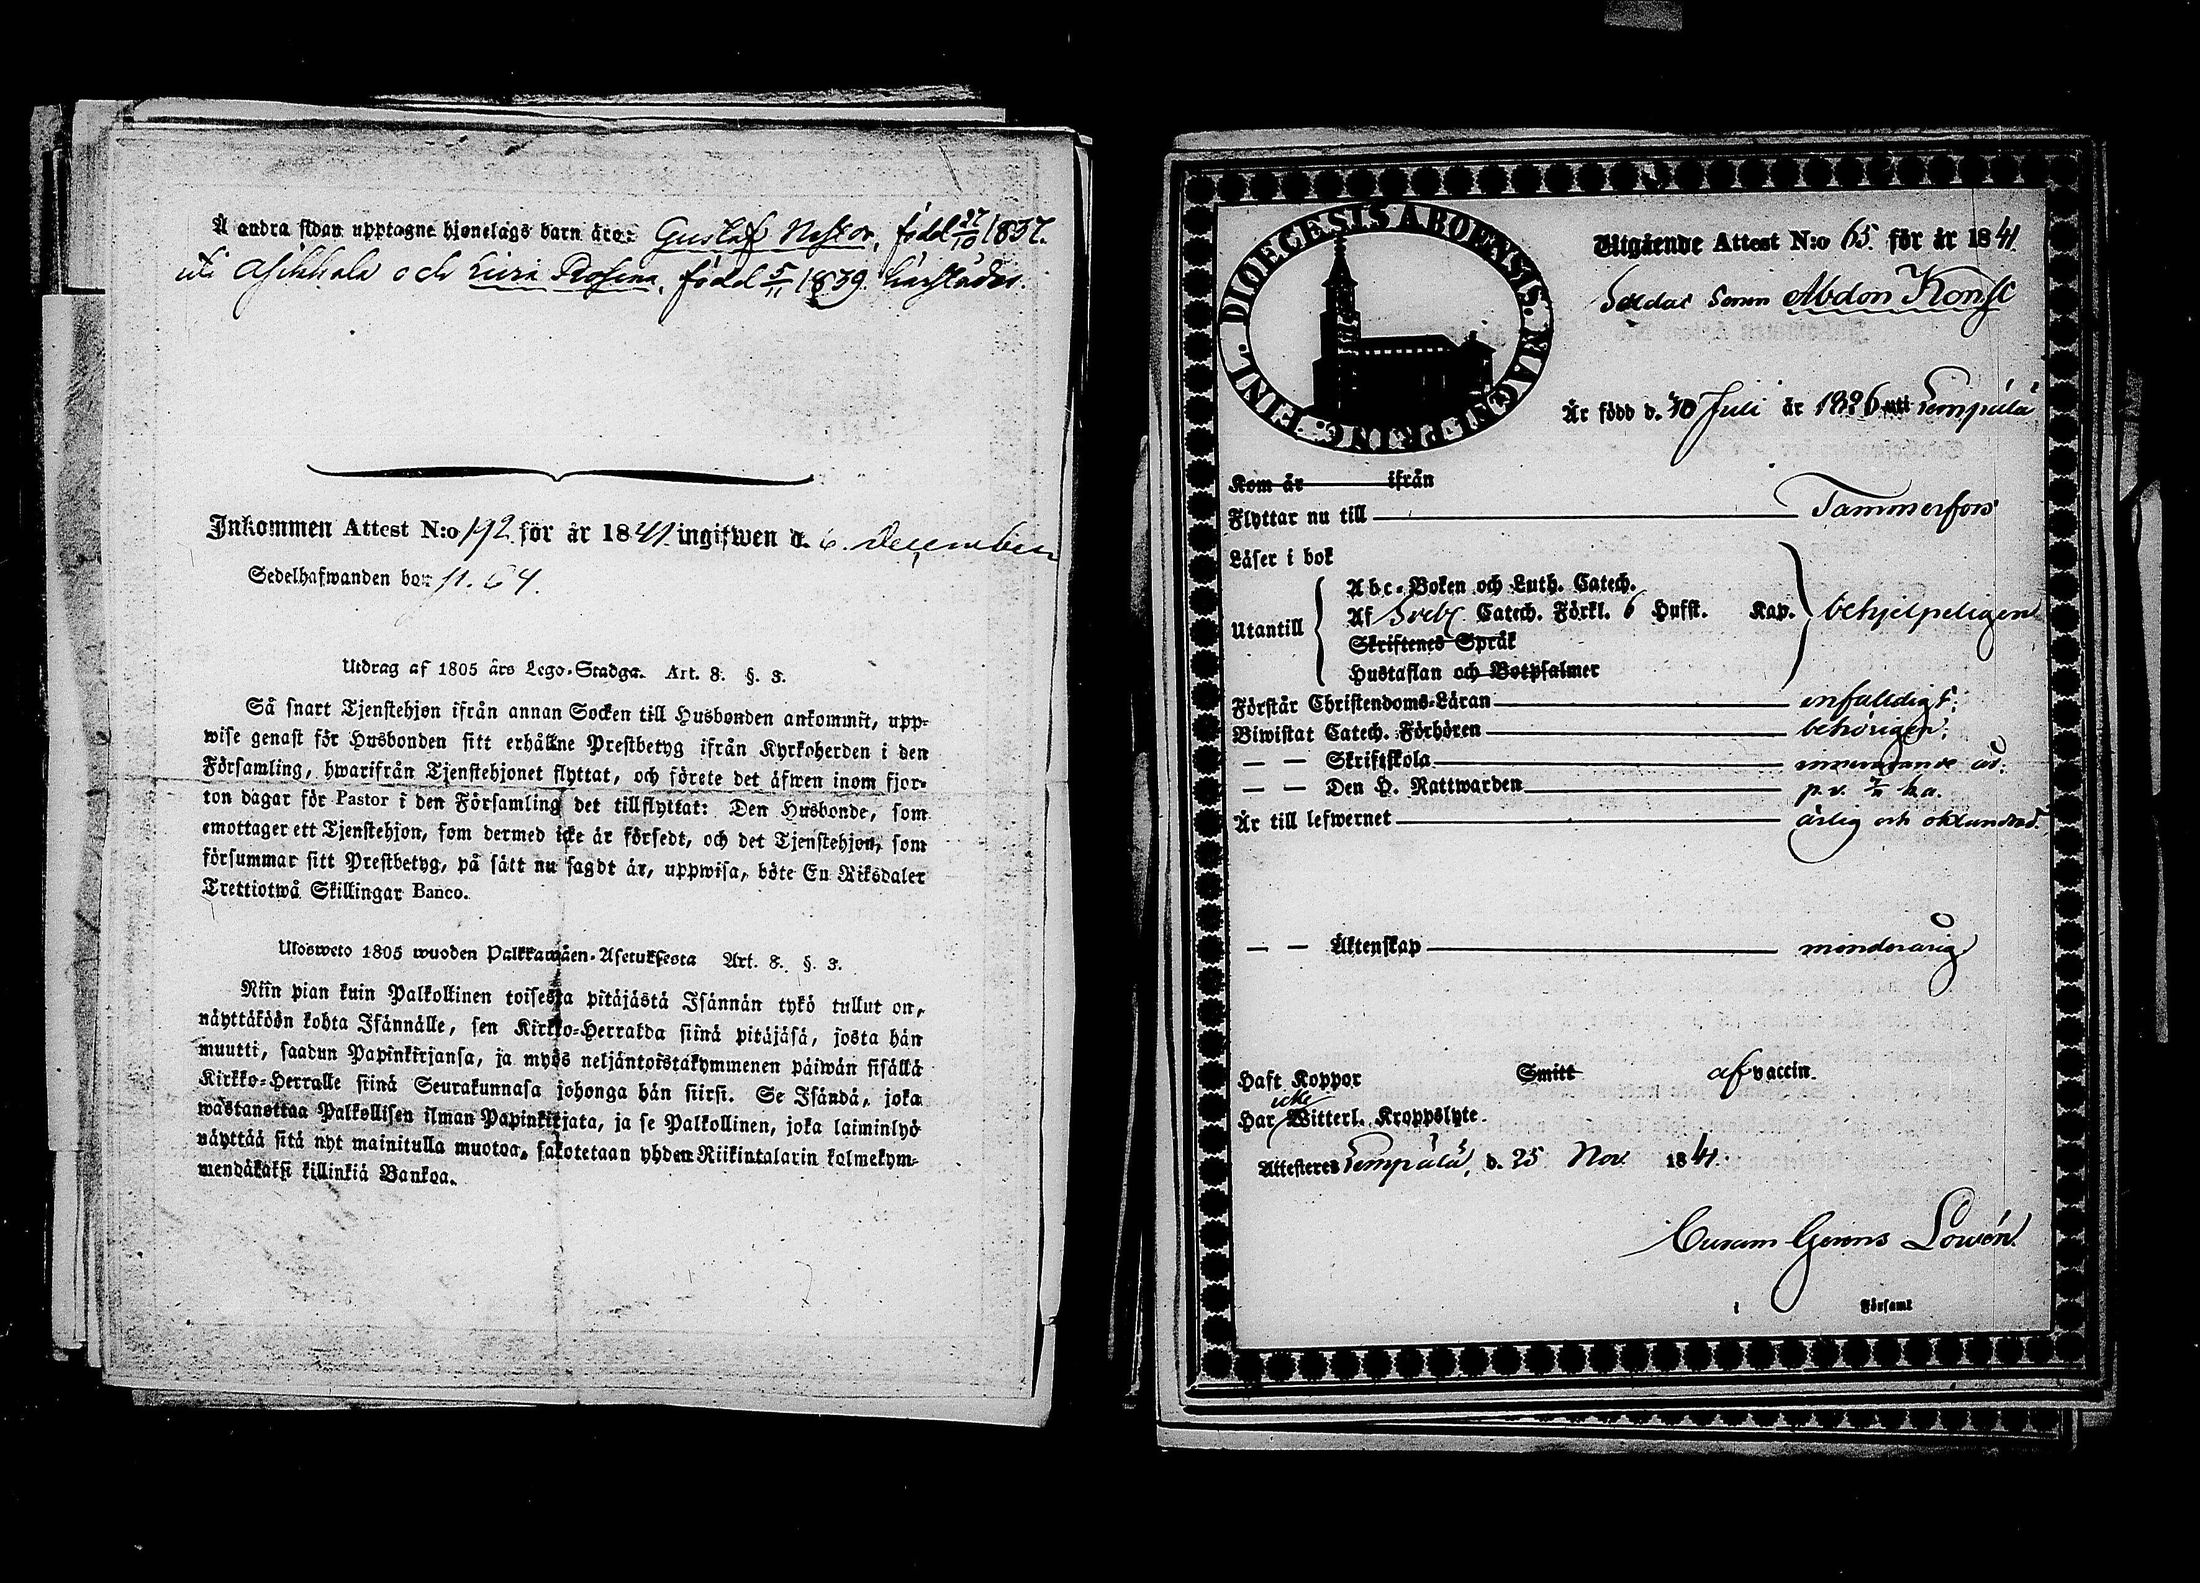 Å andra sidan upptagne hjonelags barn äro: Gustaf Nestor, född 27/10 1837.
uti Asikkala och Lisa Rosina, född 5/11 1839 härstädes.
Inkommen Attest N:o 192 för år 1841 ingifwen d. 6. December
Sedelhafwanden bor p. 64.
Utdrag af 1805 års Lego-Stadga. Art. 8. §. 3.
Så snart Tjenstehjon ifrån annan Socken till Husbonden ankommit, upp-
wise genast för Husbonden sitt erhållne Prestbetyg ifrån Kyrkoherden i den
Församling, hwarifrån Tjenstehjonet flyttat, och förete det äfwen inom fjor-
ton dagar för Pastor i den Församling det tillflyttat: Den Husbonde, som
emottager ett Tjenstehjon, som dermed icke är försedt, och det Tjenstehjon, som
försummar sitt Prestbetyg, på sätt nu sagdt är, uppwisa, böte En Riksdaler
Trettiotwå Skillingar Banco.
Ulosweto 1805 wuoden Palkkawäen-Asetuksesta Art. 8. §. 3.
Niin pian kuin Palkollinen toisesta pitäjästä Isännän tykö tullut on,
näyttäköön kohta Isännälle, sen Kirkko-Herralda siinä pitäjäsä, josta hän
muutti, saadun Papinkirjansa, ja myös neljäntoistakymmenen päiwän sisällä
Kirkko-Herralle siinä Seurakunnasa johonga hän siirsi. Se Isändä, joka
wastanottaa Palkollisen ilman Papinkirjata, ja se Palkollinen, joka laiminlyö
näyttää sitä nyt mainitulla muotoa, sakotetaan yhden Riikintalarin kolmekym-
mendäkaksi killinkiä Bankoa.
DIOECESIS ABOENSIS. MAGNI PRINC. FINL.
Utgående Attest N:o 65 för år 1841.
Soldat Sonen Abdon Konst
Är född d. 30 Juli år 1826 uti Lempälä
Kom år ifrån
Flyttar nu till Tammerfors
Läser i bok
Utantill
Abc-Boken och Luth. Catech.
Af Sveb. Catech. Förkl. 6 Hufst. Kap. behjelpeligen
Skriftenes Språk
Hustaflan och Botpsalmer
Förstår Christendoms-Läran enfaldigt.
Biwistat Catech. Förhören behörigen.
— — Skriftskola innewarande år.
— — Den H. Nattwarden
Är till lefwernet ärlig och oklandrad.
— — Äktenskap minderårig
Haft Koppor Smitt af vaccin.
Har icke Witterl. Kroppslyte.
Attesteres Lempälä, d. 25 Nov. 1841.
Curam Gerens Lowén.
i Församl